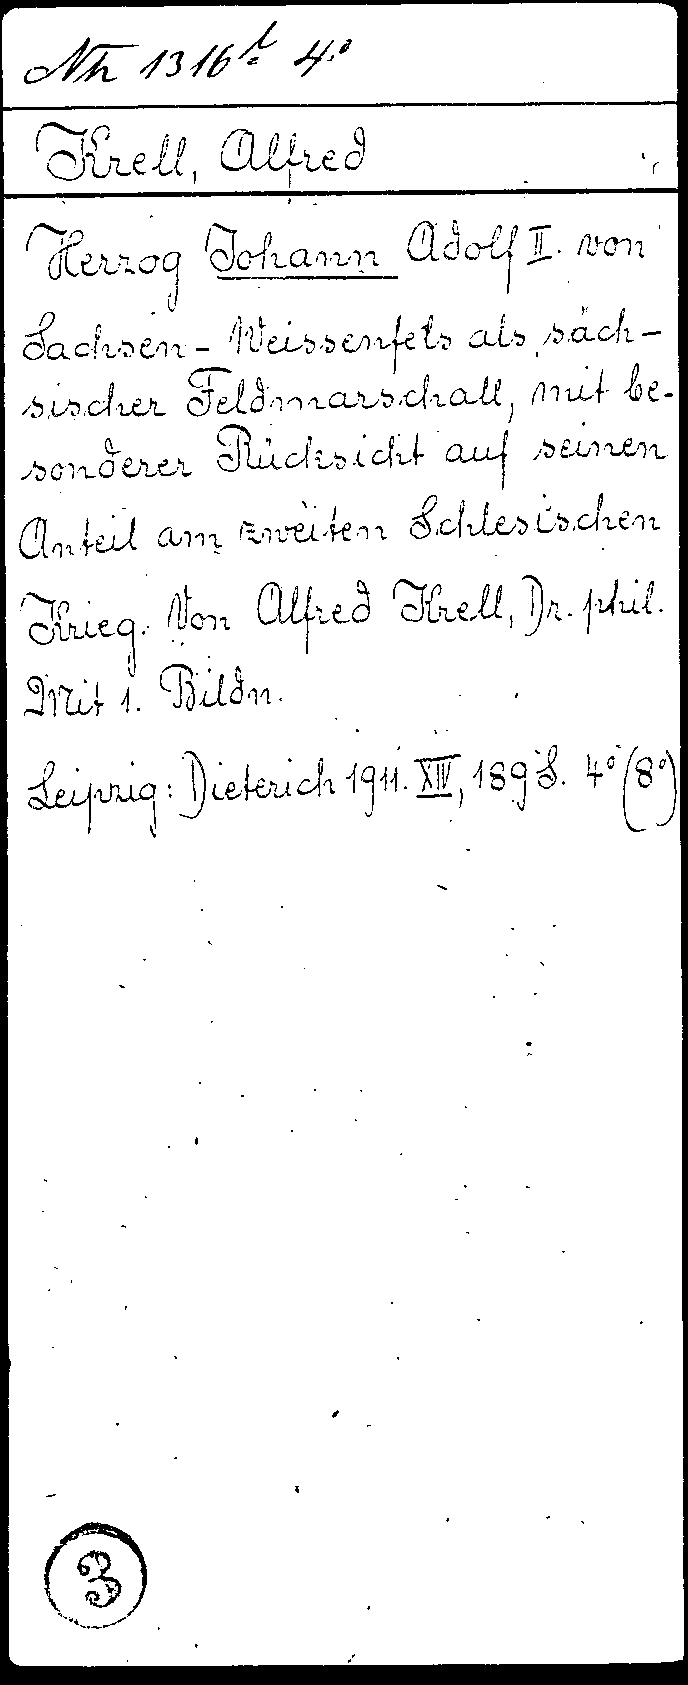 Nn 1316 l 4°
Krell, Alfred
Herzog Johann Adolf II. von
Sachsen-Weissenfels als säch-
sischer Feldmarschall, mit be-
sonderer Rücksicht auf seinen
Anteil am zweiten Schlesischen
Krieg. Von Alfred Krell, Dr. phil.
Mit 1. Bildn.
Leipzig: Dieterich 1911. XIV, 189 S. 4° (8°)
3